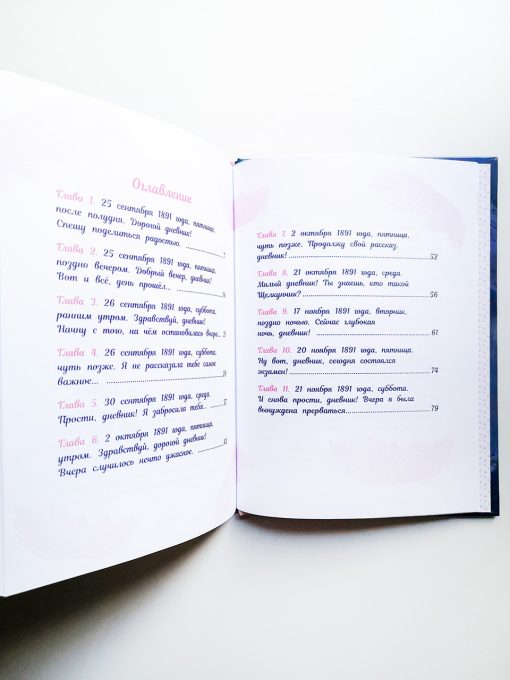 Оглавление
Глава 1. 25 сентября 1891 года, пятница,
после полудня. Дорогой дневник!
Спешу поделиться радостью. ............7
Глава 2. 25 сентября 1891 года, пятница,
поздно вечером. Добрый вечер, дневник!
Вот и всё, день прошёл...
Глава 3. 26 сентября 1891 года, суббота,
ранним утром. Здравствуй, дневник!
Начну с того, на чём остановилась вчера.. 21
Глава 4. 26 сентября 1891 года, суббота,
чуть позже. Я не рассказала тебе самое
важное...
Глава 5. 30 сентября 1891 года, среда.
Прости, дневник! Я забросила тебя..
Глава 6. 2 октября 1891 года, пятница,
утром. Здравствуй, дорогой дневник!
Вчера случилось нечто ужасное.
Глава 7. 2 октября 1891 года, пятница,
чуть позже. Продолжу свой рассказ,
дневник! ............52
Глава 8. 21 октября 1891 года, среда.
Милый дневник! Ты знаешь, кто такой
Щелкунчик? ............56
Глава 9. 17 ноября 1891 года, вторник,
поздно ночью. Сейчас глубокая
ночь, дневник! ............61
Глава 10. 20 ноября 1891 года, пятница.
Ну вот, дневник, сегодня состоялся
экзамен! ............74
Глава 11. 21 ноября 1891 года, суббота.
И снова прости, дневник! Вчера я была
вынуждена прерваться ............79